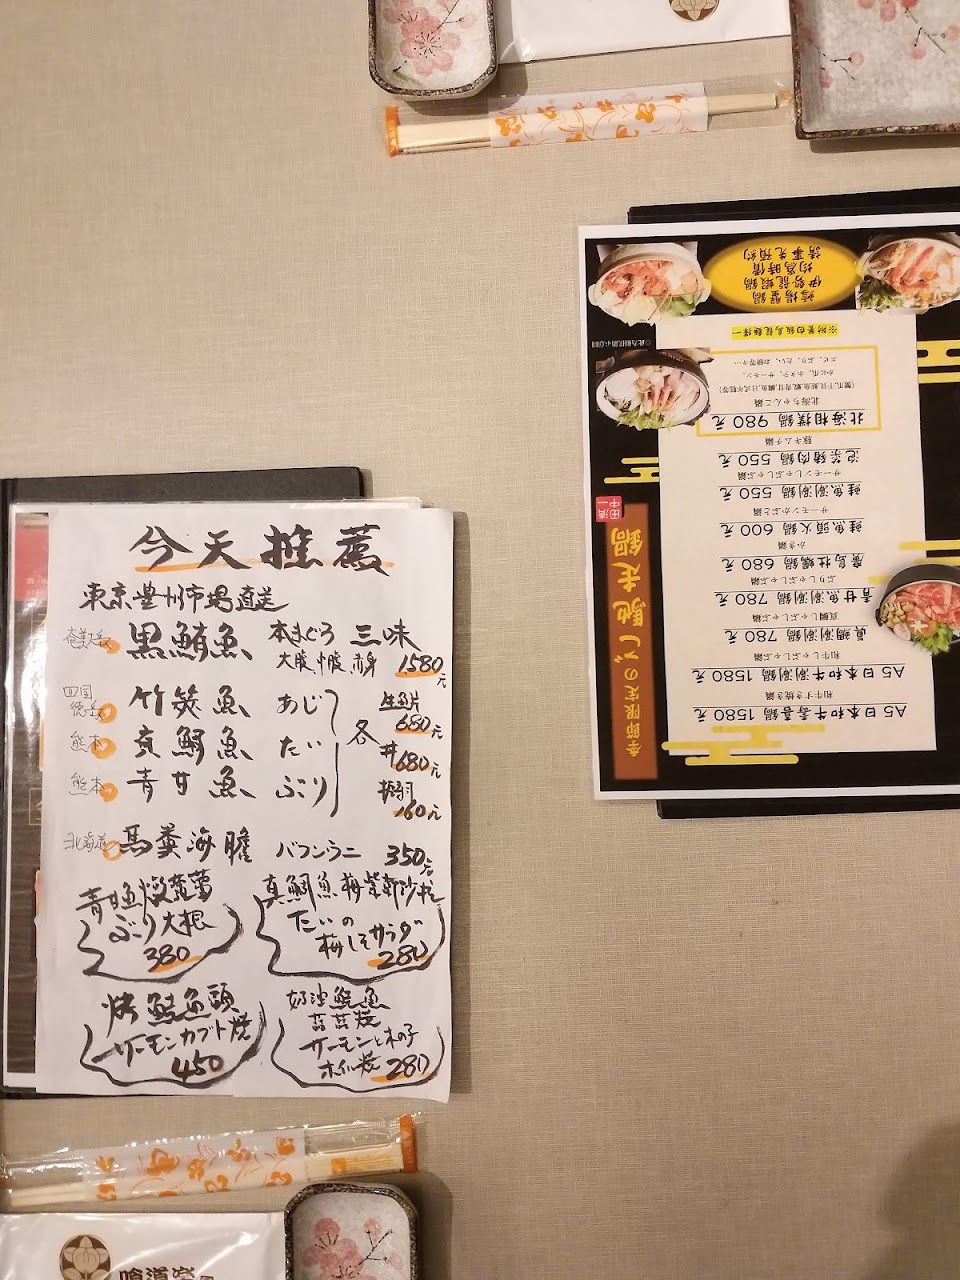 今天推薦
東京豊州市場直送
奄美大島 黒鮪魚 本まぐろ 三味
大腹、中腹、赤身 1,580元
四国 徳島 竹筴魚 あじ
熊本 真鯛魚 たい
熊本 青甘魚 ぶり
各
生魚片 680元
丼 680元
握司 160元
北海道 馬糞海膽 バフンウニ 350元
ぶり大根
380
たいの
梅しそサラダ
280
烤鮭魚頭
サーモンカブト焼
450
奶油鮭魚
菇菇燒
サーモンと木の子
ホイル焼 280
伊勢龍蝦鍋
均為時價
請事先預約
※附餐白飯烏龍麵擇一
北海相撲鍋 980元
北海ちゃんこ鍋
かに爪、ホタテ、サーモン、
エビ、ぶり、たい、お餅等々…
泡菜豬肉鍋 550元
豚キムチ鍋
鮭魚涮涮鍋 550元
サーモンしゃぶしゃぶ鍋
鮭魚頭火鍋 600元
サーモンかぶと鍋
廣島牡蠣鍋 680元
かき鍋
青甘魚涮涮鍋 780元
ぶりしゃぶしゃぶ鍋
真鯛涮涮鍋 780元
真鯛しゃぶしゃぶ鍋
A5日本和牛涮涮鍋 1580元
和牛しゃぶしゃぶ鍋
A5日本和牛壽喜鍋 1580元
和牛すき焼き鍋
季節限定のご馳走鍋